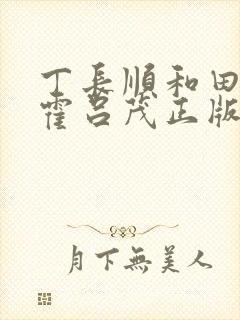 丁長順和田
霍呂茂正版
月下無美人